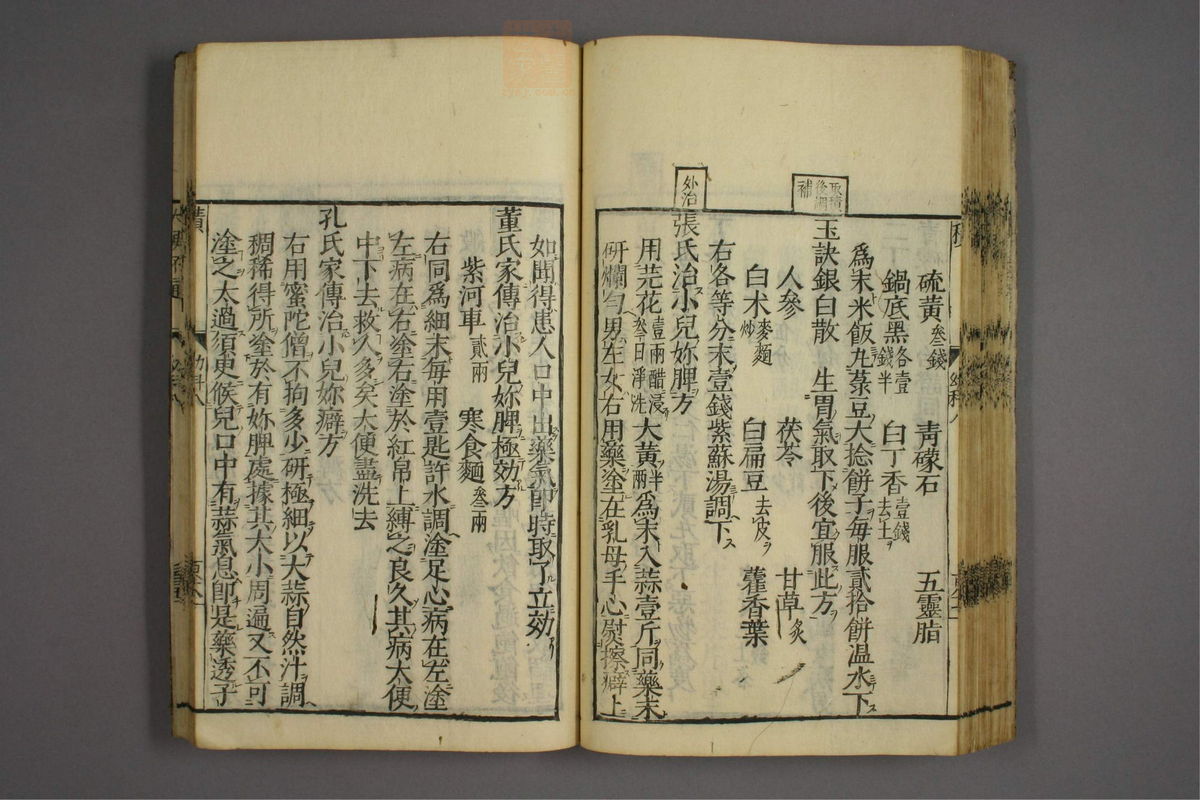 硫黃 叁錢 青礞石 五靈脂
鍋底黑 各壹錢半 白丁香 壹錢去土ヲ
爲末米飯丸菉豆大捻餅子每服貳拾餅温水下ス
玉訣銀白散 生胃氣取下後宜服此方
人參 茯苓 甘草 炙
白术 麥麵炒 白扁豆 去皮ヲ 藿香葉
右各等分末壹錢紫蘇湯調下ス
外治
張氏治小兒妳脾方
用芫花 壹兩醋浸叁日淨洗 大黃 半兩 爲末入蒜壹斤同藥末
研爛勻男左女右用藥塗在乳母手心熨擦癖上
如聞得患人口中出藥氣卽時取了立効
董氏家傳治小兒妳脾極効方
紫河車 貳兩 寒食麵 叁兩
右同爲細末每用壹匙許水調塗足心病在左塗
左病在右塗右塗於紅帛上縛之良久其病大便
中下去救人多矣大便盡洗去
孔氏家傳治小兒妳癖方
右用蜜陀僧不狥多少研極細以大蒜自然汁調
稠稀得所塗於有妳脾處據其大小周遍又不可
塗之太過須更候兒口中有蒜氣息卽是藥透子